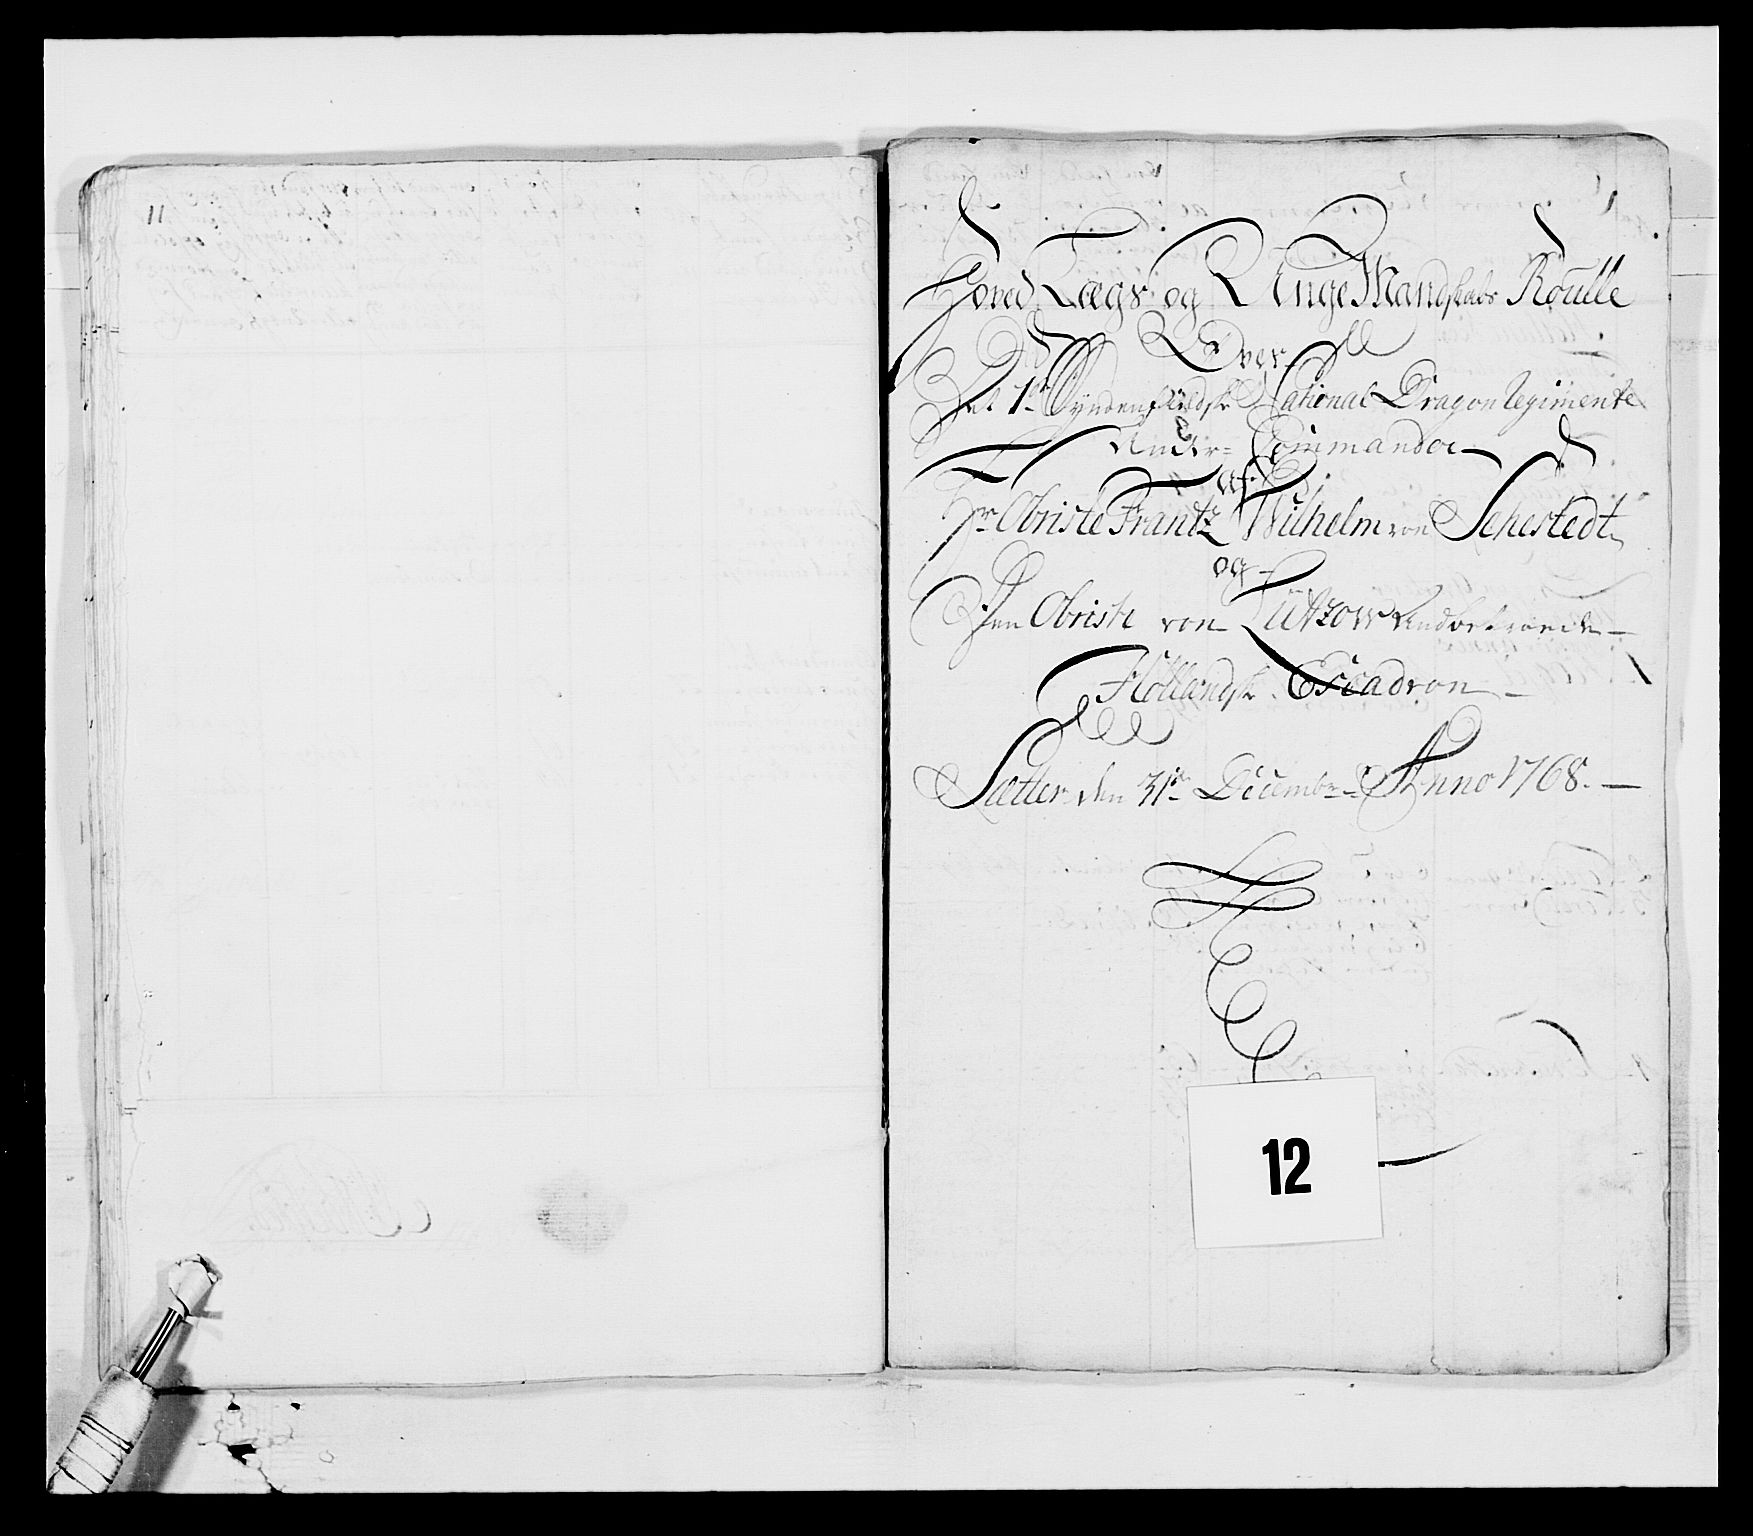 11
Hoved Lægs og Unge Mandskabs Roulle
Over
Det 1te Syndenfieldske National Dragon Regimente
Under Commando
af
Hr Obriste Frantz Wilhelm von Sehestedt
og
Den Obriste von Lützow Andbetroede
Hollandsk Escadron
Sætter den 31te Decembr Anno 1768.
12